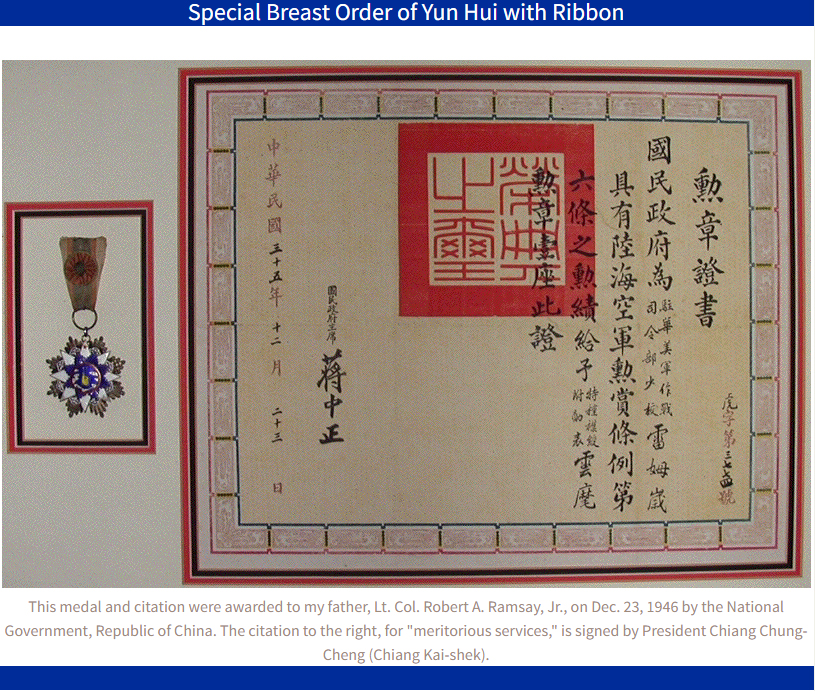 Special Breast Order of Yun Hui with Ribbon
勳章證書
虎字第三七四號
國民政府為駐華美軍作戰司令部少校雷姆歲
具有陸海空軍勳賞條例第
六條之勳績給予特種襟綬附勳表雲麾
勳章壹座此證
榮典之璽
國民政府主席 蔣中正
中華民國三十五年十二月二十三日
This medal and citation were awarded to my father, Lt. Col. Robert A. Ramsay, Jr., on Dec. 23, 1946 by the National
Government, Republic of China. The citation to the right, for "meritorious services," is signed by President Chiang Chung-
Cheng (Chiang Kai-shek).